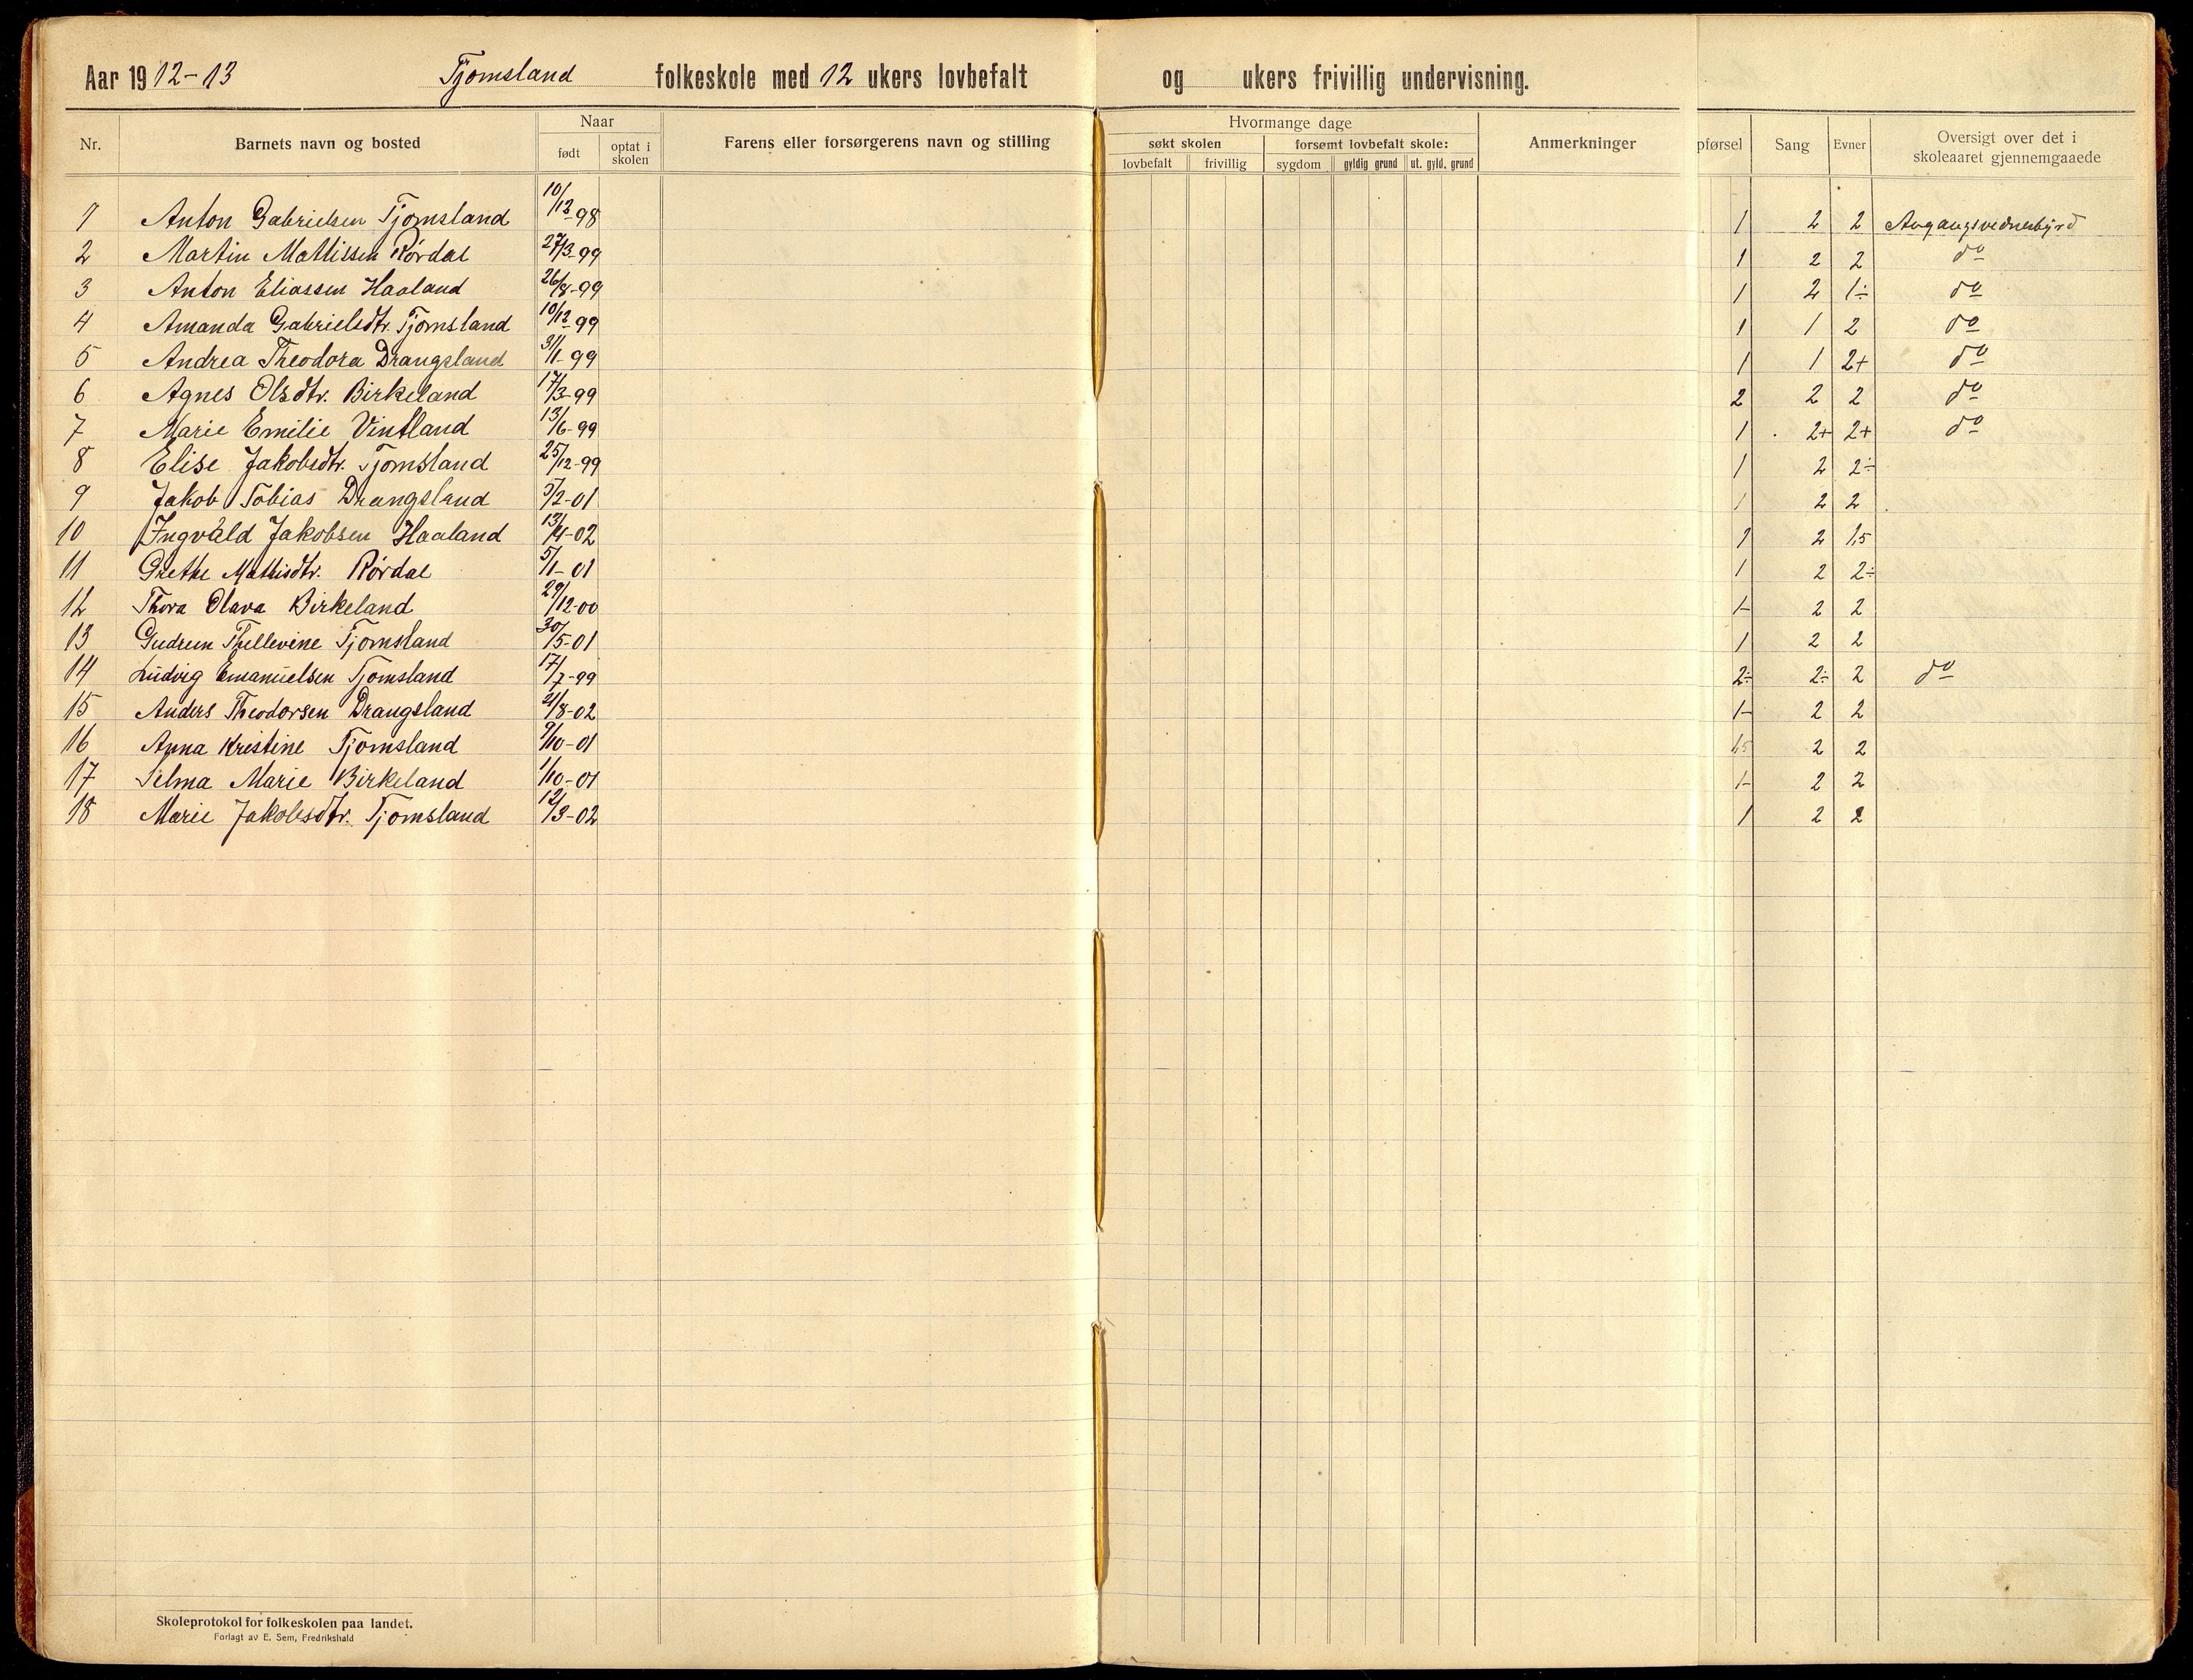 Aar 1912-13 Tjomsland folkeskole med 12 ukers lovbefalt og ukers frivillig undervisning.
Nr. Barnets navn og bosted Naar født optat i skolen Farens eller forsørgerens navn og stilling Hvormange dage søkt skolen lovbefalt frivillig forsømt lovbefalt skole: sygdom gyldig grund ut. gyld. grund Anmerkninger pførsel Sang Evner Oversigt over det i skoleaaret gjennemgaaede
1 Anton Gabrielsen Tjomsland 10/12-98 1 2 2 Avgangsvidnesbyrd
2 Martin Mathissen Rørdal 27/3-99 1 2 2 do
3 Anton Eliassen Haaland 26/8-99 1 2 1÷ do
4 Amanda Gabrielsdtr. Tjomsland 10/12-99 1 1 2 do
5 Andrea Theodora Drangsland 31/1-99 1 1 2+ do
6 Agnes Olsdtr. Birkeland 17/3-99 2 2 2 do
7 Marie Emilie Vintland 13/6-99 1 2+ 2+ do
8 Elise Jakobsdtr. Tjomsland 25/12-99 1 2 2÷
9 Jakob Tobias Drangsland 5/2-01 1 2 2
10 Ingvald Jakobsen Haaland 13/4-02 1 2 1,5
11 Grethe Mathisdtr. Rørdal 5/1-01 1 2 2÷
12 Thora Olava Birkeland 29/12-00 1- 2 2
13 Gudrun Thellevine Tjomsland 30/5-01 1 2 2
14 Ludvig Emanuelsen Tjomsland 17/7-99 2÷ 2÷ 2 do
15 Anders Theodorsen Drangsland 21/8-02 1- 2 2
16 Anna Kristine Tjomsland 9/10-01 1,5 2 2
17 Selma Marie Birkeland 1/10-01 1- 2 2
18 Marie Jakobsdtr. Tjomsland 12/3-02 1 2 2
Skoleprotokol for folkeskolen paa landet.
Forlagt av E. Sem, Fredrikshald